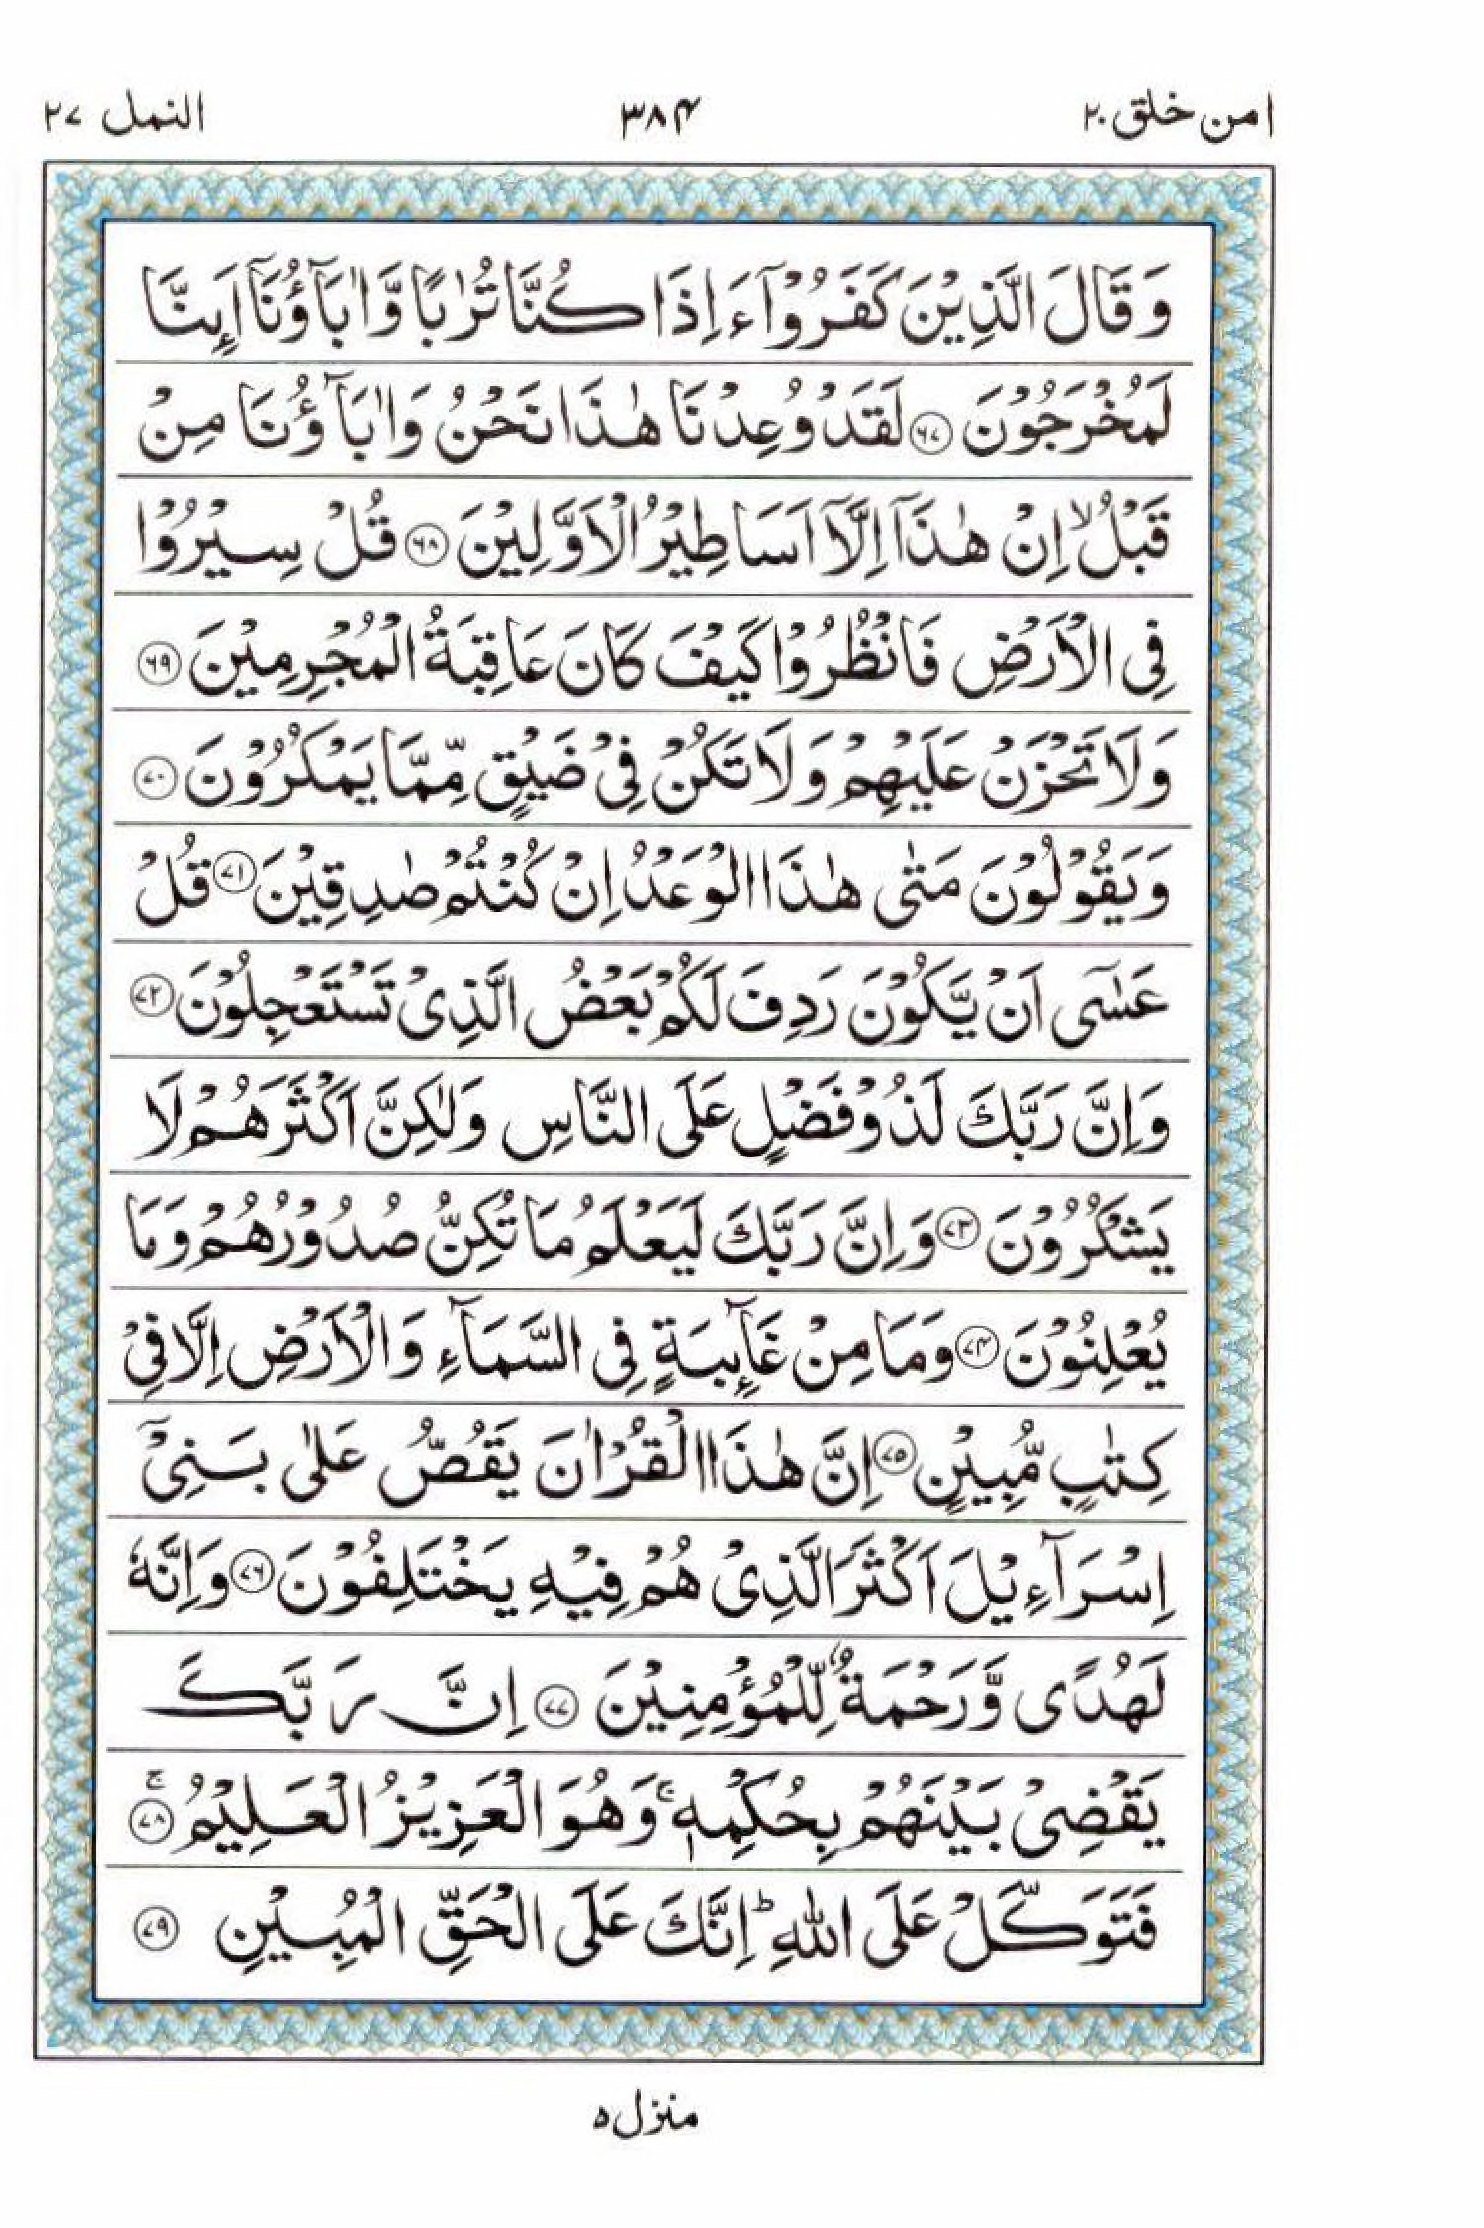 امن خلق ۲۰ ۳۸۴ النمل ۲۷
وَقَالَ الَّذِيْنَ كَفَرُوْۤا ءَاِذَا كُنَّا تُرٰبًا وَّاٰبَآؤُنَاۤ اَىِٕنَّا
لَمُخْرَجُوْنَ ﴿۶۷﴾ لَقَدْ وُعِدْنَا هٰذَا نَحْنُ وَاٰبَآؤُنَا مِنْ
قَبْلُ ۙ اِنْ هٰذَاۤ اِلَّاۤ اَسَاطِيْرُ الْاَوَّلِيْنَ ﴿۶۸﴾ قُلْ سِيْرُوْا
فِى الْاَرْضِ فَانْظُرُوْا كَيْفَ كَانَ عَاقِبَةُ الْمُجْرِمِيْنَ ﴿۶۹﴾
وَلَا تَحْزَنْ عَلَيْهِمْ وَلَا تَكُنْ فِىْ ضَيْقٍ مِّمَّا يَمْكُرُوْنَ ﴿۷۰﴾
وَيَقُوْلُوْنَ مَتٰى هٰذَا الْوَعْدُ اِنْ كُنْتُمْ صٰدِقِيْنَ ﴿۷۱﴾ قُلْ
عَسٰۤى اَنْ يَّكُوْنَ رَدِفَ لَكُمْ بَعْضُ الَّذِىْ تَسْتَعْجِلُوْنَ ﴿۷۲﴾
وَاِنَّ رَبَّكَ لَذُوْ فَضْلٍ عَلَى النَّاسِ وَلٰكِنَّ اَكْثَرَهُمْ لَا
يَشْكُرُوْنَ ﴿۷۳﴾ وَاِنَّ رَبَّكَ لَيَعْلَمُ مَا تُكِنُّ صُدُوْرُهُمْ وَمَا
يُعْلِنُوْنَ ﴿۷۴﴾ وَمَا مِنْ غَآىِٕبَةٍ فِى السَّمَآءِ وَالْاَرْضِ اِلَّا فِىْ
كِتٰبٍ مُّبِيْنٍ ﴿۷۵﴾ اِنَّ هٰذَا الْقُرْاٰنَ يَقُصُّ عَلٰى بَنِىْۤ
اِسْرَآءِيْلَ اَكْثَرَ الَّذِىْ هُمْ فِيْهِ يَخْتَلِفُوْنَ ﴿۷۶﴾ وَاِنَّهٗ
لَهُدًى وَّرَحْمَةٌ لِّلْمُؤْمِنِيْنَ ﴿۷۷﴾ اِنَّ رَبَّكَ
يَقْضِىْ بَيْنَهُمْ بِحُكْمِهٖ ۚ وَهُوَ الْعَزِيْزُ الْعَلِيْمُ ﴿۷۸﴾ ۚ
فَتَوَكَّلْ عَلَى اللّٰهِ ؕ اِنَّكَ عَلَى الْحَقِّ الْمُبِيْنِ ﴿۷۹﴾
منزل ۵